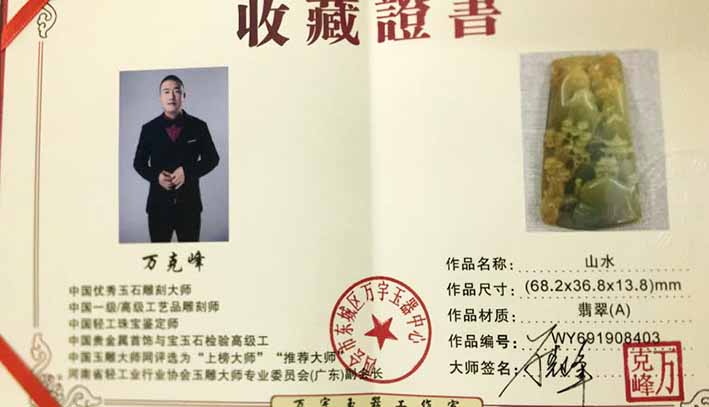 收藏證書
万克峰
中国优秀玉石雕刻大师
中国一级/高级工艺品雕刻师
中国轻工珠宝鉴定师
中国贵金属首饰与宝玉石检验高级工
中国玉雕大师网评选为“上榜大师”“推荐大师”
河南省轻工业行业协会玉雕大师专业委员会(广东)副会长
四会市东城区万宇玉器中心
作品名称: 山水
作品尺寸: (68.2x36.8x13.8)mm
作品材质: 翡翠(A)
作品编号: WY691908403
大师签名: 万克峰
万克峰
万宇玉器工作室